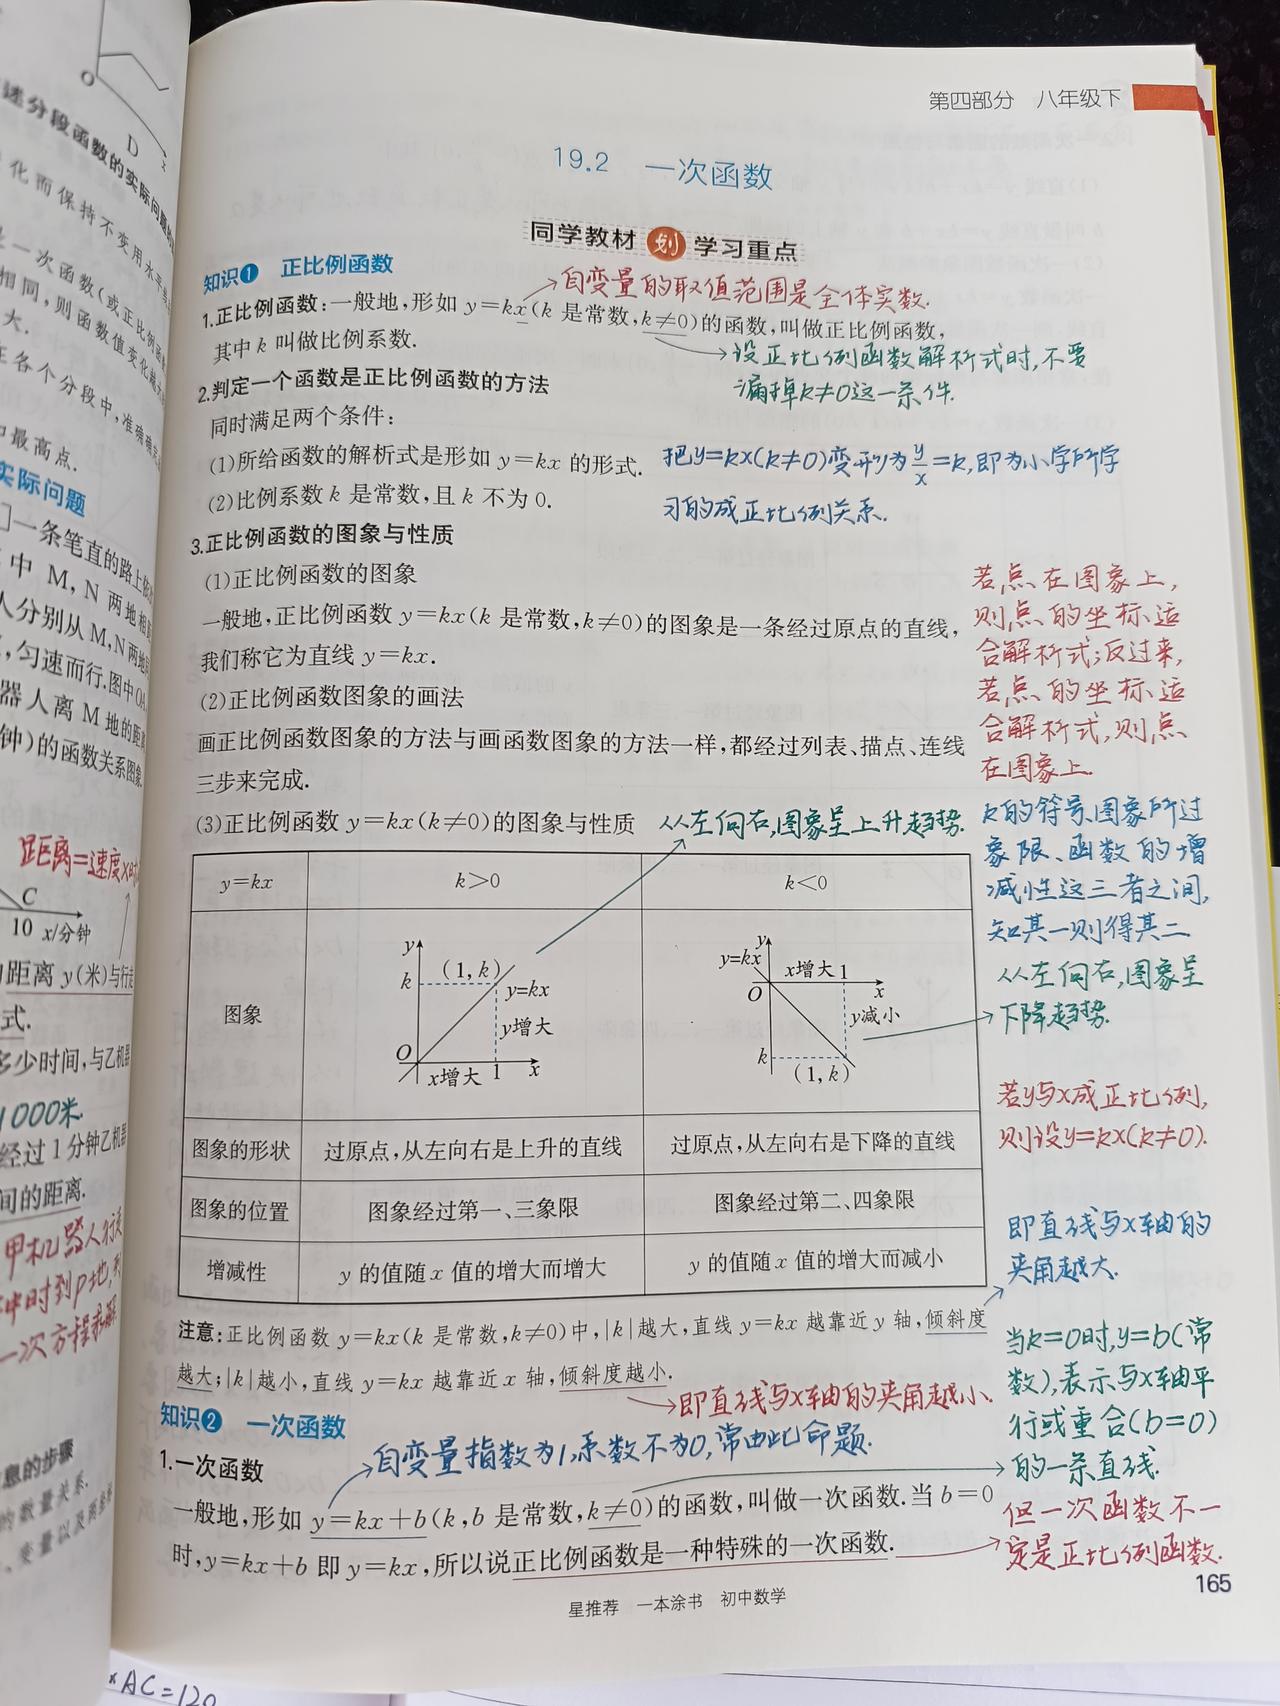 第四部分 八年级下
19.2 一次函数
同学教材 划 学习重点
知识1 正比例函数
自变量的取值范围是全体实数.
1.正比例函数:一般地,形如 y=kx(k 是常数,k≠0)的函数,叫做正比例函数,
其中 k 叫做比例系数.
设正比例函数解析式时,不要
漏掉k≠0这一条件.
2.判定一个函数是正比例函数的方法
同时满足两个条件:
(1)所给函数的解析式是形如 y=kx 的形式.
(2)比例系数 k 是常数,且 k 不为 0.
把y=kx(k≠0)变形为y/x=k,即为小学所学
习的成正比例关系.
3.正比例函数的图象与性质
(1)正比例函数的图象
一般地,正比例函数 y=kx(k 是常数,k≠0)的图象是一条经过原点的直线,
我们称它为直线 y=kx.
(2)正比例函数图象的画法
画正比例函数图象的方法与画函数图象的方法一样,都经过列表、描点、连线
三步来完成.
(3)正比例函数 y=kx(k≠0)的图象与性质
从左向右,图象呈上升趋势.
若点在图象上,
则点的坐标适
合解析式;反过来,
若点的坐标适
合解析式,则点
在图象上.
k的符号、图象所过
象限、函数的增
减性这三者之间,
知其一则得其二
从左向右,图象呈
下降趋势.
若y与x成正比例,
则设y=kx(k≠0).
y=kx k>0 k<0
图象
y
k
(1,k)
y=kx
y增大
O
x增大 1 x
y
y=kx
x增大 1
O
x
y减小
k
(1,k)
图象的形状 过原点,从左向右是上升的直线 过原点,从左向右是下降的直线
图象的位置 图象经过第一、三象限 图象经过第二、四象限
增减性 y 的值随 x 值的增大而增大 y 的值随 x 值的增大而减小
即直线与x轴的
夹角越大.
注意:正比例函数 y=kx(k 是常数,k≠0)中,|k|越大,直线 y=kx 越靠近 y 轴,倾斜度
越大;|k|越小,直线 y=kx 越靠近 x 轴,倾斜度越小.
即直线与x轴的夹角越小.
知识2 一次函数
自变量指数为1,系数不为0,常由此命题.
1.一次函数
一般地,形如 y=kx+b(k,b 是常数,k≠0)的函数,叫做一次函数.当 b=0
时,y=kx+b 即 y=kx,所以说正比例函数是一种特殊的一次函数.
当k=0时,y=b(常
数),表示与x轴平
行或重合(b=0)
的一条直线.
但一次函数不一
定是正比例函数.
165
星推荐 一本涂书 初中数学
O
D
述分段函数的实际问题
化而保持不变用水平
一次函数(或正比例函
相同,则函数值变化
大.
在各个分段中,准确确
最高点.
实际问题
一条笔直的路上
中 M,N 两地相
人分别从M,N两地
,匀速而行.图中OA
器人离 M 地的距离
钟)的函数关系图象
距离=速度×时
C
10 x/分钟
距离 y(米)与行走
式.
多少时间,与乙机器
1000米.
经过1分钟乙机器
间的距离.
甲机器人行
时到P地,
一次方程
息的步骤
的数量关系.
、变量以及
AC=120